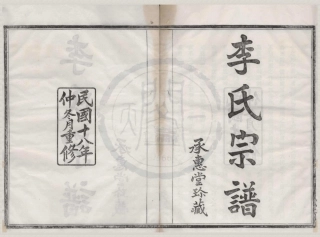 李氏宗譜
承惠堂珍藏
民國十八年
仲冬月重修